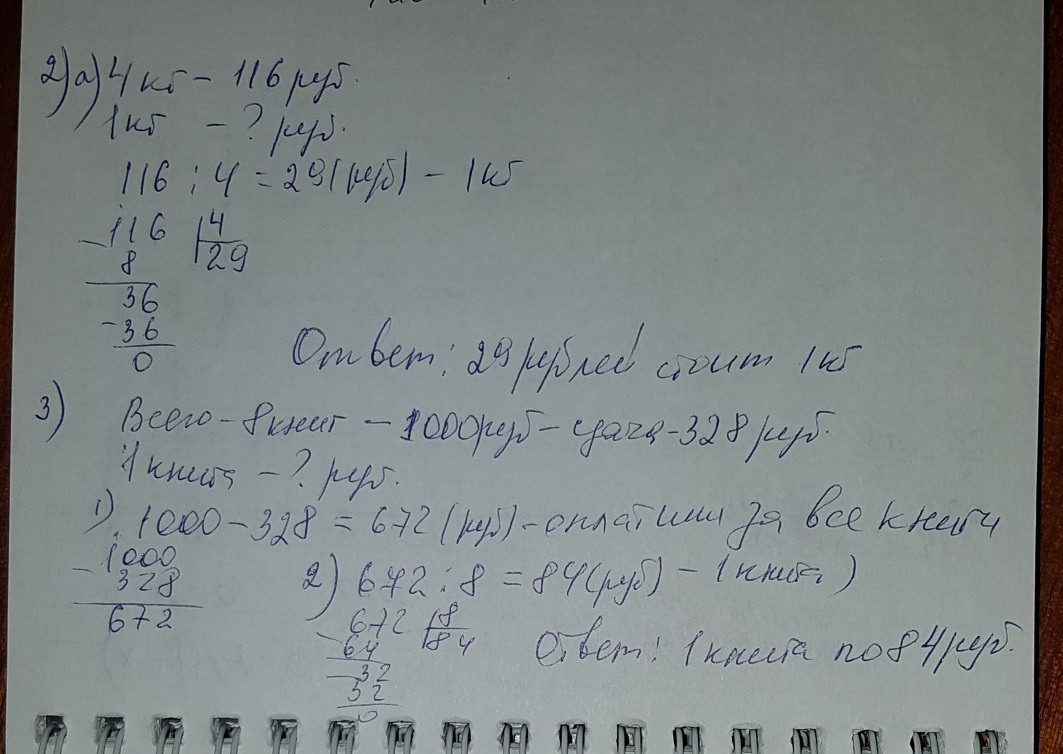 2) а) 4 кг - 116 руб.
1 кг - ? руб.
116 : 4 = 29 (руб) - 1 кг
-116 | 4
8 29
36
-36
0
Ответ: 29 рублей стоит 1 кг
3) Всего - 8 книг - 1000 руб - сдача - 328 руб.
1 книга - ? руб.
1) 1000 - 328 = 672 (руб) - оплатили за все книги
-1000
328
672
2) 672 : 8 = 84 (руб) - 1 книга)
-672 | 8
64 84
-32
32
0
Ответ: 1 книга по 84 руб.